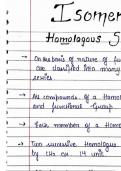 Isomer
Homologous S
→ On the basis of nature of fu
are classified into many
series
→ All compounds of a Homol
and functional Group
→ Each member of a Homo
→ Two successive Homologue
by CH₂ or 14 unit